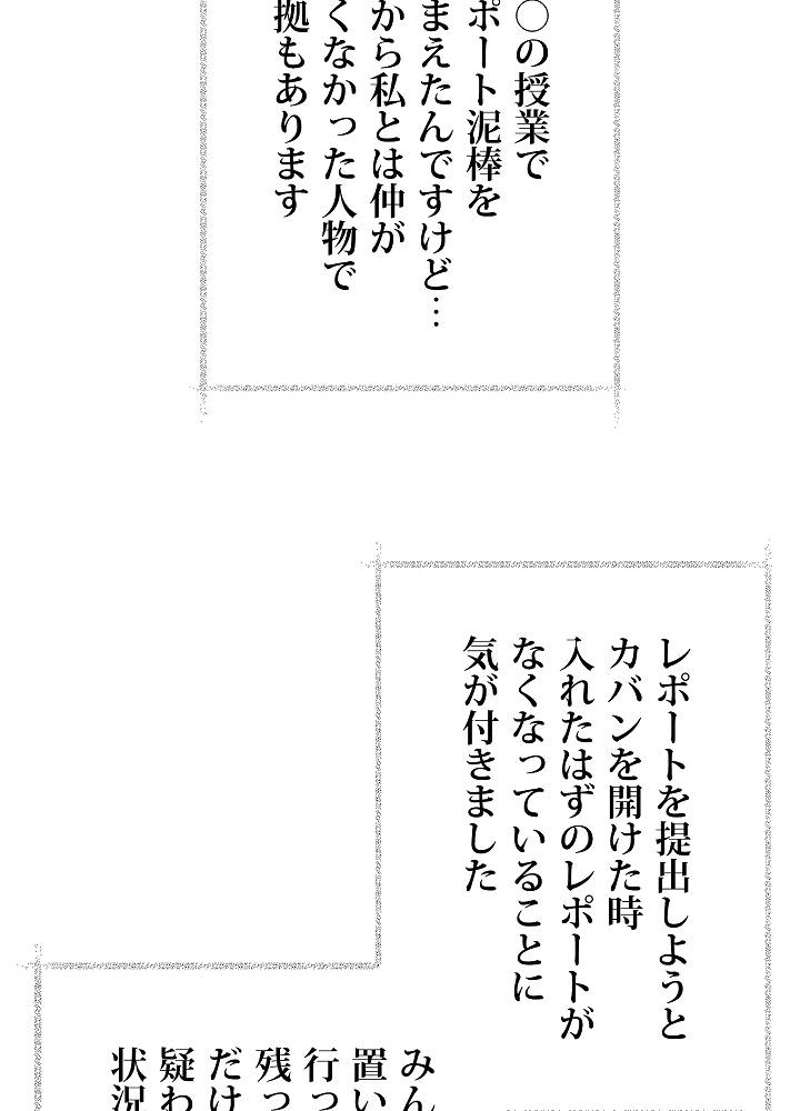 ○の授業で
ポート泥棒を
まえたんですけど…
から私とは仲が
くなかった人物で
拠もあります
レポートを提出しようと
カバンを開けた時
入れたはずのレポートが
なくなっていることに
気が付きました
みん
置い
行っ
残っ
だけ
疑わ
状況